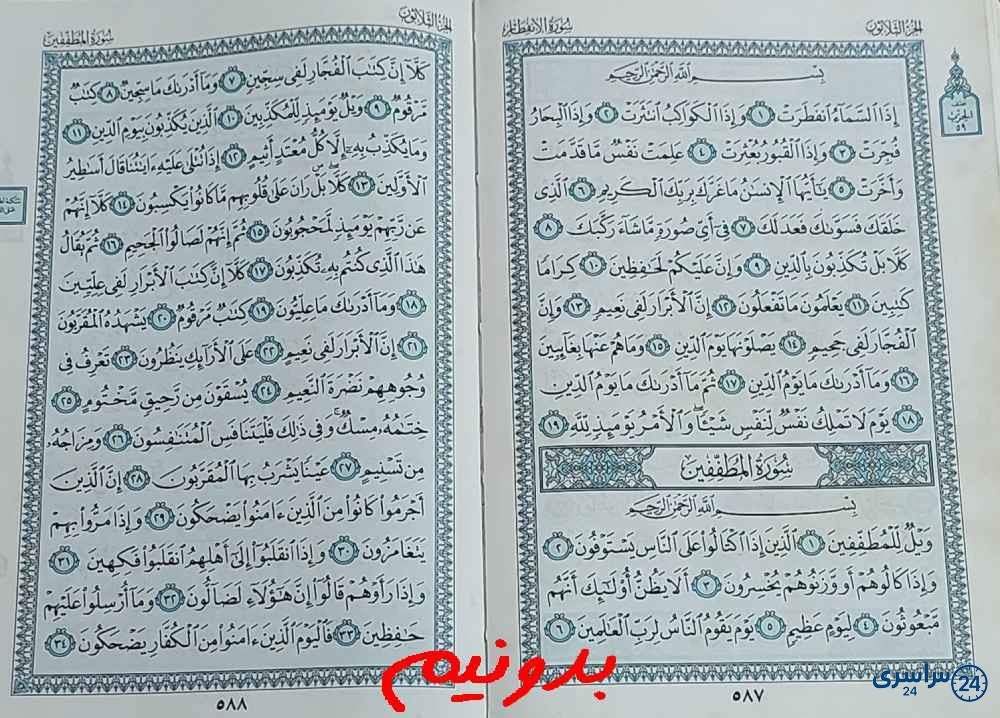 الجزء الثلاثون
سورة الانفطار
نصف
الحزب
٥٩
بسم الله الرحمن الرحيم
إِذَا ٱلسَّمَآءُ ٱنفَطَرَتْ ١ وَإِذَا ٱلْكَوَاكِبُ ٱنتَثَرَتْ ٢ وَإِذَا ٱلْبِحَارُ
فُجِّرَتْ ٣ وَإِذَا ٱلْقُبُورُ بُعْثِرَتْ ٤ عَلِمَتْ نَفْسٌ مَّا قَدَّمَتْ
وَأَخَّرَتْ ٥ يَٰٓأَيُّهَا ٱلْإِنسَٰنُ مَا غَرَّكَ بِرَبِّكَ ٱلْكَرِيمِ ٦ ٱلَّذِى
خَلَقَكَ فَسَوَّىٰكَ فَعَدَلَكَ ٧ فِىٓ أَىِّ صُورَةٍ مَّا شَآءَ رَكَّبَكَ ٨
كَلَّا بَلْ تُكَذِّبُونَ بِٱلدِّينِ ٩ وَإِنَّ عَلَيْكُمْ لَحَٰفِظِينَ ١٠ كِرَامًا
كَٰتِبِينَ ١١ يَعْلَمُونَ مَا تَفْعَلُونَ ١٢ إِنَّ ٱلْأَبْرَارَ لَفِى نَعِيمٍ ١٣ وَإِنَّ
ٱلْفُجَّارَ لَفِى جَحِيمٍ ١٤ يَصْلَوْنَهَا يَوْمَ ٱلدِّينِ ١٥ وَمَا هُمْ عَنْهَا بِغَآئِبِينَ
١٦ وَمَآ أَدْرَىٰكَ مَا يَوْمُ ٱلدِّينِ ١٧ ثُمَّ مَآ أَدْرَىٰكَ مَا يَوْمُ ٱلدِّينِ
١٨ يَوْمَ لَا تَمْلِكُ نَفْسٌ لِّنَفْسٍ شَيْـًٔا ۖ وَٱلْأَمْرُ يَوْمَئِذٍ لِّلَّهِ ١٩
سُورَةُ المُطَفِّفِينَ
بسم الله الرحمن الرحيم
وَيْلٌ لِّلْمُطَفِّفِينَ ١ ٱلَّذِينَ إِذَا ٱكْتَالُوا۟ عَلَى ٱلنَّاسِ يَسْتَوْفُونَ ٢
وَإِذَا كَالُوهُمْ أَو وَّزَنُوهُمْ يُخْسِرُونَ ٣ أَلَا يَظُنُّ أُو۟لَٰٓئِكَ أَنَّهُم
مَّبْعُوثُونَ ٤ لِيَوْمٍ عَظِيمٍ ٥ يَوْمَ يَقُومُ ٱلنَّاسُ لِرَبِّ ٱلْعَٰلَمِينَ ٦
٥٨٧
الجزء الثلاثون
سورة المطففين
كَلَّآ إِنَّ كِتَٰبَ ٱلْفُجَّارِ لَفِى سِجِّينٍ ٧ وَمَآ أَدْرَىٰكَ مَا سِجِّينٌ ٨ كِتَٰبٌ
مَّرْقُومٌ ٩ وَيْلٌ يَوْمَئِذٍ لِّلْمُكَذِّبِينَ ١٠ ٱلَّذِينَ يُكَذِّبُونَ بِيَوْمِ ٱلدِّينِ ١١
وَمَا يُكَذِّبُ بِهِۦٓ إِلَّا كُلُّ مُعْتَدٍ أَثِيمٍ ١٢ إِذَا تُتْلَىٰ عَلَيْهِ ءَايَٰتُنَا قَالَ أَسَٰطِيرُ
ٱلْأَوَّلِينَ ١٣ كَلَّا ۖ بَلْ ۜ رَانَ عَلَىٰ قُلُوبِهِم مَّا كَانُوا۟ يَكْسِبُونَ ١٤ كَلَّآ إِنَّهُمْ
عَن رَّبِّهِمْ يَوْمَئِذٍ لَّمَحْجُوبُونَ ١٥ ثُمَّ إِنَّهُمْ لَصَالُوا۟ ٱلْجَحِيمِ ١٦ ثُمَّ يُقَالُ
هَٰذَا ٱلَّذِى كُنتُم بِهِۦ تُكَذِّبُونَ ١٧ كَلَّآ إِنَّ كِتَٰبَ ٱلْأَبْرَارِ لَفِى عِلِّيِّينَ
١٨ وَمَآ أَدْرَىٰكَ مَا عِلِّيُّونَ ١٩ كِتَٰبٌ مَّرْقُومٌ ٢٠ يَشْهَدُهُ ٱلْمُقَرَّبُونَ
٢١ إِنَّ ٱلْأَبْرَارَ لَفِى نَعِيمٍ ٢٢ عَلَى ٱلْأَرَآئِكِ يَنظُرُونَ ٢٣ تَعْرِفُ فِى
وُجُوهِهِمْ نَضْرَةَ ٱلنَّعِيمِ ٢٤ يُسْقَوْنَ مِن رَّحِيقٍ مَّخْتُومٍ ٢٥
خِتَٰمُهُۥ مِسْكٌ ۚ وَفِى ذَٰلِكَ فَلْيَتَنَافَسِ ٱلْمُتَنَٰفِسُونَ ٢٦ وَمِزَاجُهُۥ
مِن تَسْنِيمٍ ٢٧ عَيْنًا يَشْرَبُ بِهَا ٱلْمُقَرَّبُونَ ٢٨ إِنَّ ٱلَّذِينَ
أَجْرَمُوا۟ كَانُوا۟ مِنَ ٱلَّذِينَ ءَامَنُوا۟ يَضْحَكُونَ ٢٩ وَإِذَا مَرُّوا۟ بِهِمْ
يَتَغَامَزُونَ ٣٠ وَإِذَا ٱنقَلَبُوٓا۟ إِلَىٰٓ أَهْلِهِمُ ٱنقَلَبُوا۟ فَكِهِينَ ٣١
وَإِذَا رَأَوْهُمْ قَالُوٓا۟ إِنَّ هَٰٓؤُلَآءِ لَضَآلُّونَ ٣٢ وَمَآ أُرْسِلُوا۟ عَلَيْهِمْ
حَٰفِظِينَ ٣٣ فَٱلْيَوْمَ ٱلَّذِينَ ءَامَنُوا۟ مِنَ ٱلْكُفَّارِ يَضْحَكُونَ ٣٤
٥٨٨
بدونیم
سراسری
24
24